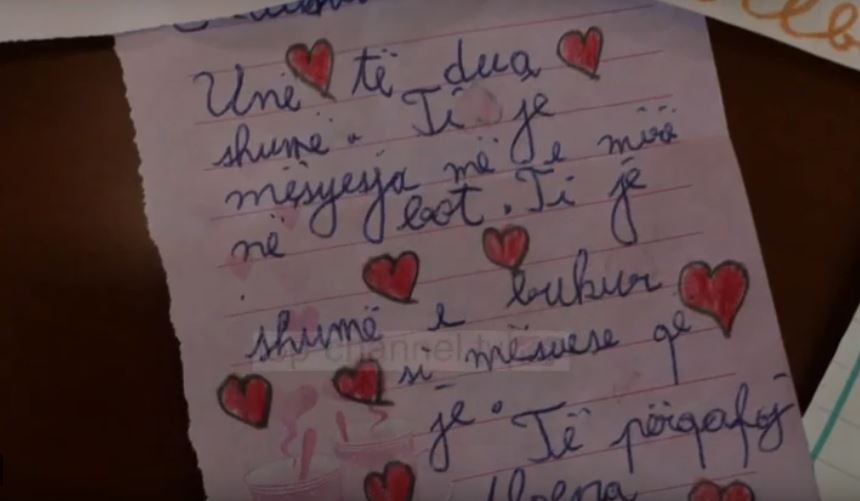 Unë të dua
shumë. Ti je
mësyesja më e mirë
në bot. Ti je
shumë e bukur
top-channel.tv
si mësuese që
je. Të përqafoj